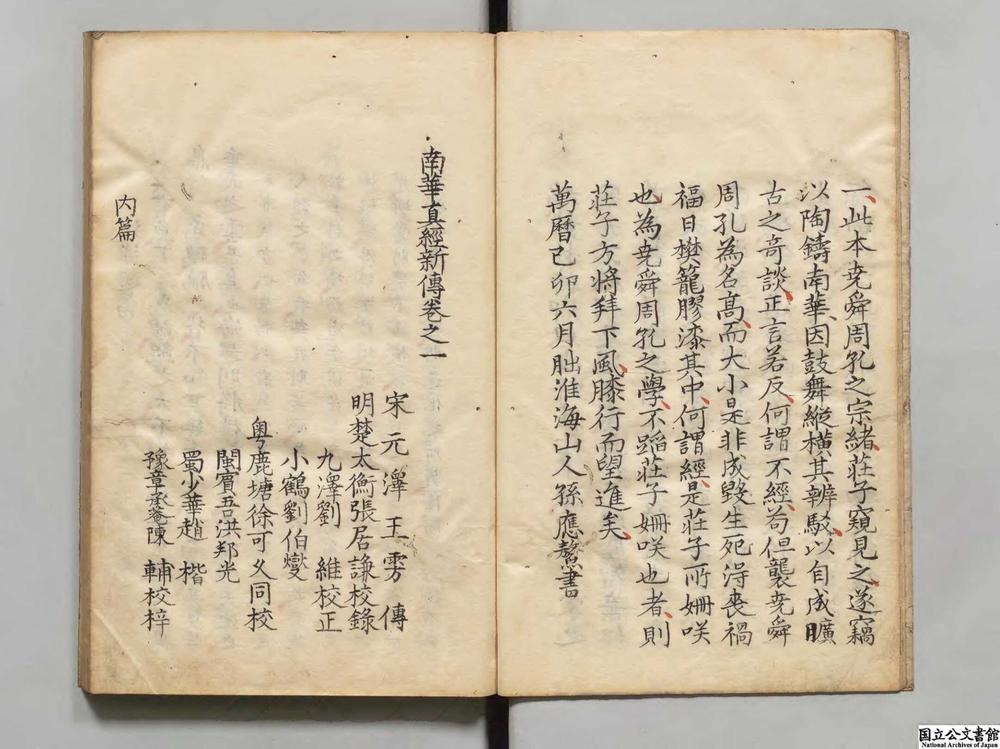 一此本尭舜周孔之宗緒莊子窺見之遂竊
以陶鑄南華因鼓舞縱橫其辨駁以自成曠
古之奇談正言若反何謂不經苟但襲尭舜
周孔為名高而大小是非成毀生死淂喪禍
福日樊籠膠漆其中何謂經是莊子所姗咲
也為尭舜周孔之學不蹈莊子姗咲也者則
莊子方將拜下風膝行而望進矣
萬曆己卯六月朏淮海山人孫應鰲書
南華真經新傳卷之一
宋元澤王雱傳
明楚太衡張居謙校錄
九澤劉維校正
小鶴劉伯燮
粤鹿塘徐可久同校
閩賓吾洪邦光
蜀少華趙楷
豫章承菴陳輔校梓
內篇
国立公文書館
National Archives of Japan